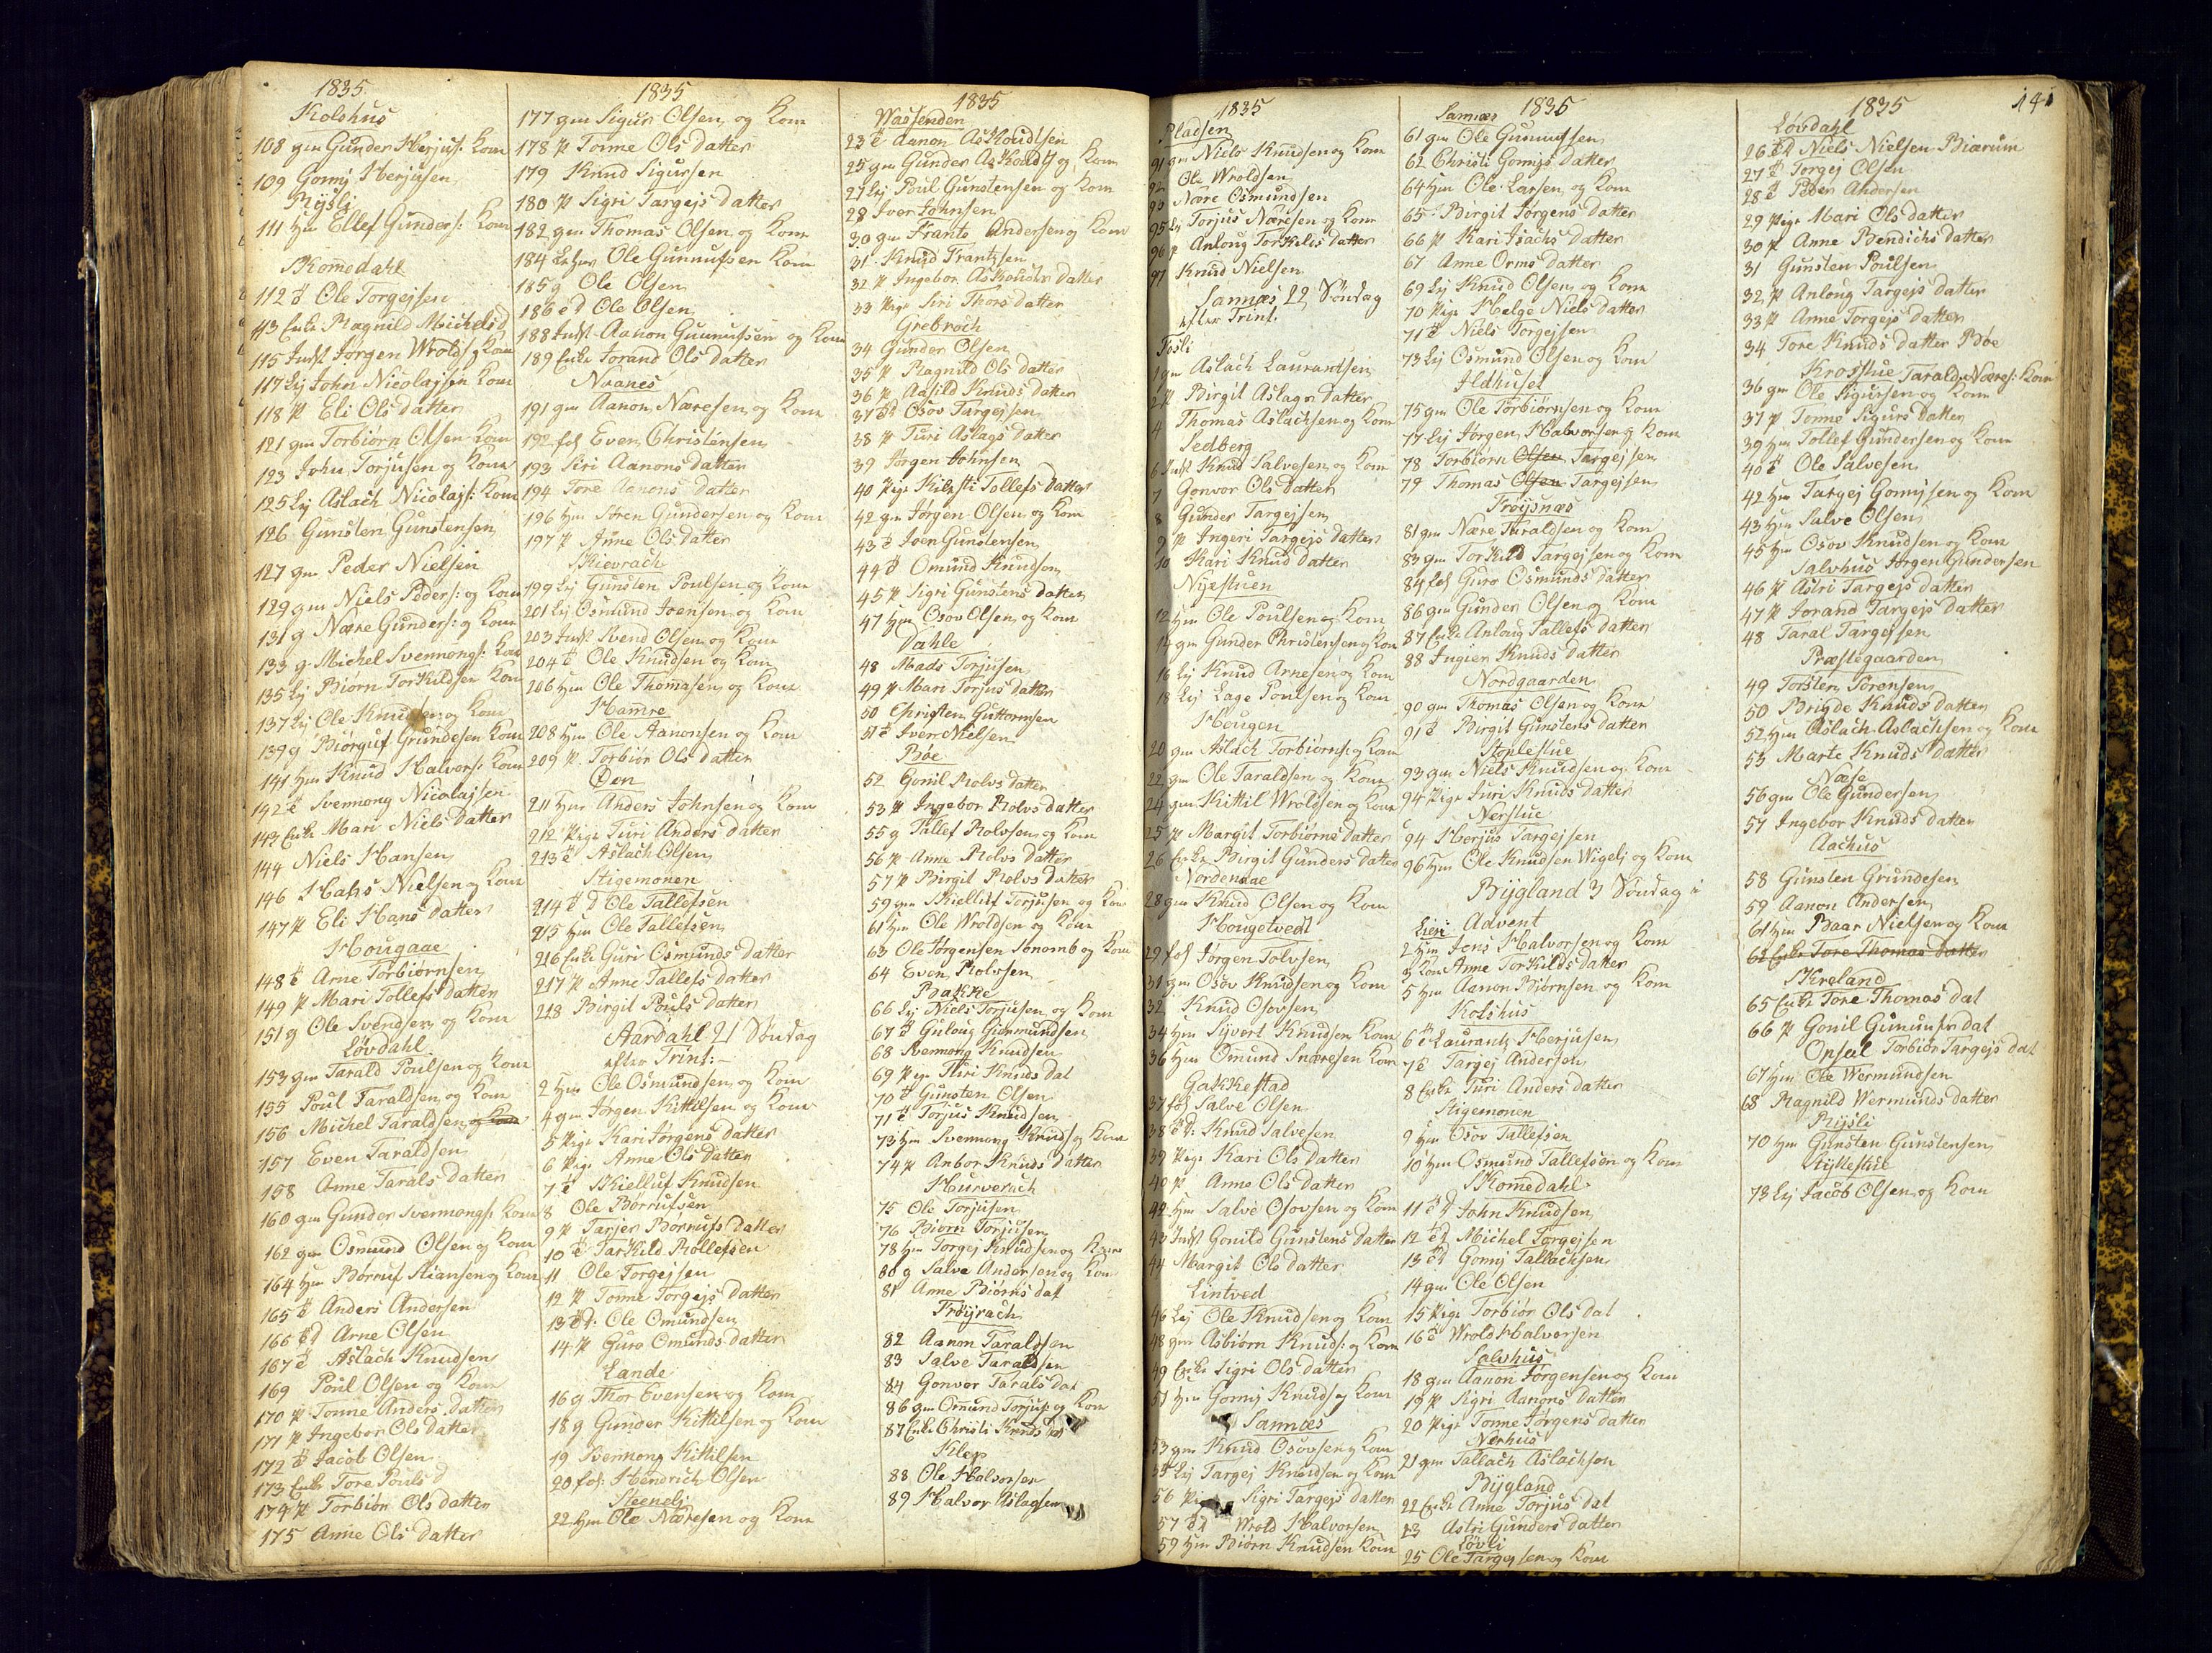 1835
Kolshus
108 gm Gunder Herjus: Kom
109 Gomj Herjusen
Rijsli
111 Hm Ellef Gunders: Kom
Skomedahl
112 Ole Torgejsen
113 Enke Ragnild Michels d
115 Indst Jørgen Wrolds: Kom
117 Lej John Nicolajsen Kom
118 p Eli Ols datter
121 gm Torbiørn Olsen Kom
123 John Torjusen og Kom
125 Lej Aslach Nicolajs: Kom
126 Gunsten Gunstensen
127 gm Peder Nielsen
129 gm Niels Peders: og Kom
131 g Nære Gunders: og Kom
133 g Michel Svennongs: Kom
135 Lej Biørn Torkildsen Kom
137 Lej Ole Knudsen og Kom
139 g Biørguf Grundesen Kom
141 Hm Knud Halvors: Kom
142 Svennong Nicolajsen
143 Enke Mari Niels datter
144 Niels Hansen
146 Hans Nielsen og Kom
147 p Eli Hans datter
Hougaae
148 Arne Torbiørnsen
149 p Mari Tollefs datter
151 g Ole Svendsen og Kom
Løvdahl
153 gm Tarald Poulsen og Kom
155 Poul Taraldsen og Kom
156 Michel Taraldsen og Kom
157 Even Taraldsen
158 Anne Tarals datter
160 gm Gunder Svennongs: Kom
162 gm Osmund Olsen og Kom
164 Hm Børruf Stiansen og Kom
165 Anders Andersen
166 Arne Olsen
167 Aslach Knudsen
169 Poul Olsen og Kom
170 p Tonne Anders datter
171 p Ingebor Ols datter
172 Jacob Olsen
173 Enke Tore Pouls d
174 p Torbiør Ols datter
175 Anne Ols datter
1835
177 gm Sigur Olsen og Kom
178 p Tonne Ols datter
179 Knud Sigursen
180 p Sigri Targejs datter
182 gm Thomas Olsen og Kom
184 Ole Gunnufsen Kom
185 g Ole Olsen
186 Ole Olsen
188 Indst Aanon Gunnufsen og Kom
189 Enke Torand Ols datter
Naanes
191 gm Aanon Næresen og Kom
192 fol Even Christensen
193 Siri Aanons datter
194 Tore Aanons datter
196 Hm Søren Gundersen og Kom
197 p Anne Ols datter
Skievrach
199 Lej Gunsten Poulsen og Kom
201 Lej Osmund Joensen og Kom
203 Indst Svend Olsen og Kom
204 Ole Knudsen og Kom
206 Hm Ole Thomasen og Kom
Hamre
208 Hm Ole Aanonsen og Kom
209 p Torbiør Ols datter
Øen
211 Hm Anders Johnsen og Kom
212 Pige Turi Anders datter
213 Aslach Olsen
Stigemonen
214 Ole Tallefsen
215 Hm Ole Tallefsen
216 Enke Guri Osmunds datter
217 p Anne Tallefs datter
218 Birgit Pouls datter
Aardahl 21 Søndag
efter Trint:
2 Hm Ole Osmundsen og Kom
4 gm Jørgen Kittilsen og Kom
5 Pige Kari Jørgens datter
6 Pige Anne Ols datter
7 Skielluf Knudsen
8 Ole Børrufsen
9 p Tarjer Børrufs datter
10 Tarkild Rollefsen
11 Ole Torgejsen
12 p Tonne Torgejs datter
13 Ole Omundsen
14 p Guro Omunds datter
Lande
16 g Thor Evensen og Kom
18 g Gunder Kittilsen og Kom
19 Svennong Kittilsen
20 fol: Hendrich Olsen
Steenelj
22 Hm Ole Næresen og Kom
1835
Wassenden
23 Aanon Askoudtsen
25 gm Gunder Askouds og Kom
27 Lej Poul Gunstensen og Kom
28 Iver Johnsen
30 gm Frants Andersen og Kom
31 Knud Frantzsen
32 p Ingebor Askouds datter
33 Pige Siri Thors datter
Grebroch
34 Gunder Olsen
35 p Ragnild Ols datter
36 p Aasild Knuds datter
37 Osov Targejsen
38 p Turi Aslags datter
39 Jørgen Johnsen
40 Pige Kirsti Tollefs datter
42 gm Jørgen Olsen og Kom
43 Joen Gunstensen
44 Omund Knudsen
45 p Sigri Gunstens datter
47 Hm Osov Olsen og Kom
Dahle
48 Mads Torjusen
49 p Mari Torjus datter
50 Christen Guttormsen
51 Iver Nielsen
Bøe
52 Gonil Rolvs datter
53 p Ingebor Rolvs datter
55 g Tallef Rolvsen og Kom
56 p Anne Rolvs datter
57 p Birgit Rolvs datter
59 gm Skielluf Torjusen og Kom
61 Hm Ole Wroldsen og Kom
63 Ole Jørgensen Sonomb og Kom
64 Even Rolvsen
Bakke
66 Lej Niels Torjusen og Kom
67 Guloug Giermundsen
68 Svennong Knudsen
69 Pige Thri Knuds dat
70 Gunsten Olsen
71 Torjus Knudsen
73 Hm Svennong Knuds og Kom
74 p Anbor Knuds datter
Hurverach
75 Ole Torjusen
76 Biørn Torjusen
78 Hm Torgej Knudsen og Kom
80 g Salve Andersen og Kom
81 Anne Biørns dat
Frøijrach
82 Aanon Taraldsen
83 Salve Taraldsen
84 Gonvor Tarals dat
86 gm Omund Torjus: og Kom
87 Enke Christi Knuds dat
Klep
88 Ole Halvorsen
89 Halvor Aslagsen
1835
Pladsen
91 gm Niels Knudsen og Kom
Ole Wroldsen
Nære Osmundsen
95 Lej Torjus Næresen og Kom
96 p Anloug Torkilds datter
97 Knud Nielsen
Sannæs 22 Søndag
efter Trint.
Tøsli
1 gm Aslach Laurandsen
2 p Birgit Aslags datter
4 Thomas Aslachsen og Kom
Sedberg
6 Indst Knud Salvesen og Kom
7 Gonvor Ols datter
8 Gunder Targejsen
9 p Ingeri Targejs datter
10 Kari Knud datter
Nyestuen
12 Hm Ole Poulsen og Kom
14 gm Gunder Christensen og Kom
16 Lej Knud Arnesen og Kom
18 Lej Lage Poulsen og Kom
Hougen
20 gm Aslach Torbiørns: og Kom
22 gm Ole Taraldsen og Kom
24 gm Kittil Wroldsen og Kom
25 p Margit Torbiørns datter
26 Enke Birgit Gunders datter
Nordenaae
28 gm Knud Olsen og Kom
Hougetvedt
29 fol Jørgen Tolvsen
31 gm Osov Knudsen og Kom
32 Knud Osovsen
34 Hm Sijvert Knudsen Kom
36 Hm Omund Snæresen Kom
Gakkestad
37 fol Salve Olsen
38 Knud Salvesen
39 Pige Kari Ols datter
40 p Anne Ols datter
42 Hm Salve Osovsen og Kom
43 Indst Gonild Gunstens datter
44 Margit Ols datter
Lintved
46 Lej Ole Knudsen og Kom
48 gm Asbiørn Knuds: og Kom
49 Enke Sigri Ols datter
51 Hm Gomj Knuds og Kom
Sannæs
53 gm Knud Osovsen og Kom
55 Lej Targej Knudsen og Kom
56 Sigri Targejs datter
57 Wrold Halvorsen
59 Hm Biørn Knudsen Kom
Sannæs 1835
61 gm Ole Gunnufsen
62 Christi Gomjs datter
64 Hm Ole Larsen og Kom
65 Birgit Jørgens datter
66 p Kari Isachs datter
67 Anne Orms datter
69 Lej Knud Olsen og Kom
70 Pige Helge Niels datter
71 Niels Torgejsen
73 Lej Osmund Olsen og Kom
Ildhuset
75 gm Ole Torbiørnsen og Kom
77 Lej Jørgen Halvorsen og Kom
78 Torbiørn Olsen Targejsen
79 Thomas Olsen Targejsen
Frøijsnæs
81 gm Nære Taraldsen og Kom
83 gm Torkild Targejsen og Kom
84 fol Guro Osmunds datter
86 gm Gunder Olsen og Kom
87 Enke Anloug Tallefs datter
88 Ingier Knuds datter
Nordgaarden
90 gm Thomas Olsen og Kom
91 Birgit Gunstens datter
Stoplestue
93 gm Niels Knudsen og Kom
94 Pige Juri Knuds datter
Nerstue
94 Herjus Targejsen
96 Hm Ole Knudsen Wigelj og Kom
Bijgland 3 Søndag i
Lien Advent
2 Hm Jens Halvorsen og Kom
3 Kon Anne Torkilds datter
5 Hm Aanon Biørnsen og Kom
Kolshus
6 Laurants Herjusen
7 Targej Andersen
8 Enke Turi Anders datter
Stigemonen
9 Hm Osov Tallefsen
10 Hm Osmund Tallefsen og Kom
Skomedahl
11 John Knudsen
12 Michel Torgejsen
13 Gomj Tallachsen
14 gm Ole Olsen
15 Pige Torbiør Ols dat
16 Wrold Halvorsen
Salvhus
18 gm Aanon Jørgensen og Kom
19 p Sigri Aanons datter
20 Pige Tonne Jørgens datter
Nerhus
21 gm Tallach Aslachson
Bijgland
22 Enke Anne Torjus dat
23 Astri Gunders datter
Løvli
25 Ole Targejsen og Kom
1835 141
Løvdahl
26 Niels Nielsen Biærum
27 Torgej Olsen
28 Peder Andersen
29 Pige Mari Ols datter
30 p Anne Bendichs datter
31 Gunsten Poulsen
32 p Anloug Targejs datter
33 p Anne Torgejs datter
34 Tore Knuds datter Bøe
Krosstue Tarald Næres: Kom
36 gm Ole Sigursen og Kom
37 p Tonne Sigurs datter
39 Hm Tollef Gundersen og Kom
40 Ole Salvesen
42 Hm Targej Gomjsen og Kom
43 Hm Salve Olsen
45 Hm Osov Knudsen og Kom
Salvhus Jørgen Gundersen
46 p Astri Targejs datter
47 p Jorand Targejs datter
48 Taral Targejsen
Præstegaarden
49 Torsten Sørensen
50 Brigde Knuds datter
52 Hm Aslach Aslachsen og Kom
53 Marte Knuds datter
Næse
56 gm Ole Gundersen
57 Ingebor Knuds datter
Aachus
58 Gunsten Grundesen
59 Aanon Andersen
61 Hm Baar Nielsen og Kom
62 Enke Tore Thomas datter
Skreland
65 Enke Tore Thomas dat
66 p Gonil Gunnufs dat
Opsal Torbiør Targejs dat
67 Hm Ole Wermundsen
68 Ragnild Wermunds datter
Rijsli
70 Hm Gunsten Gunstensen
Stijllestue
73 Lej Jacob Olsen og Kom